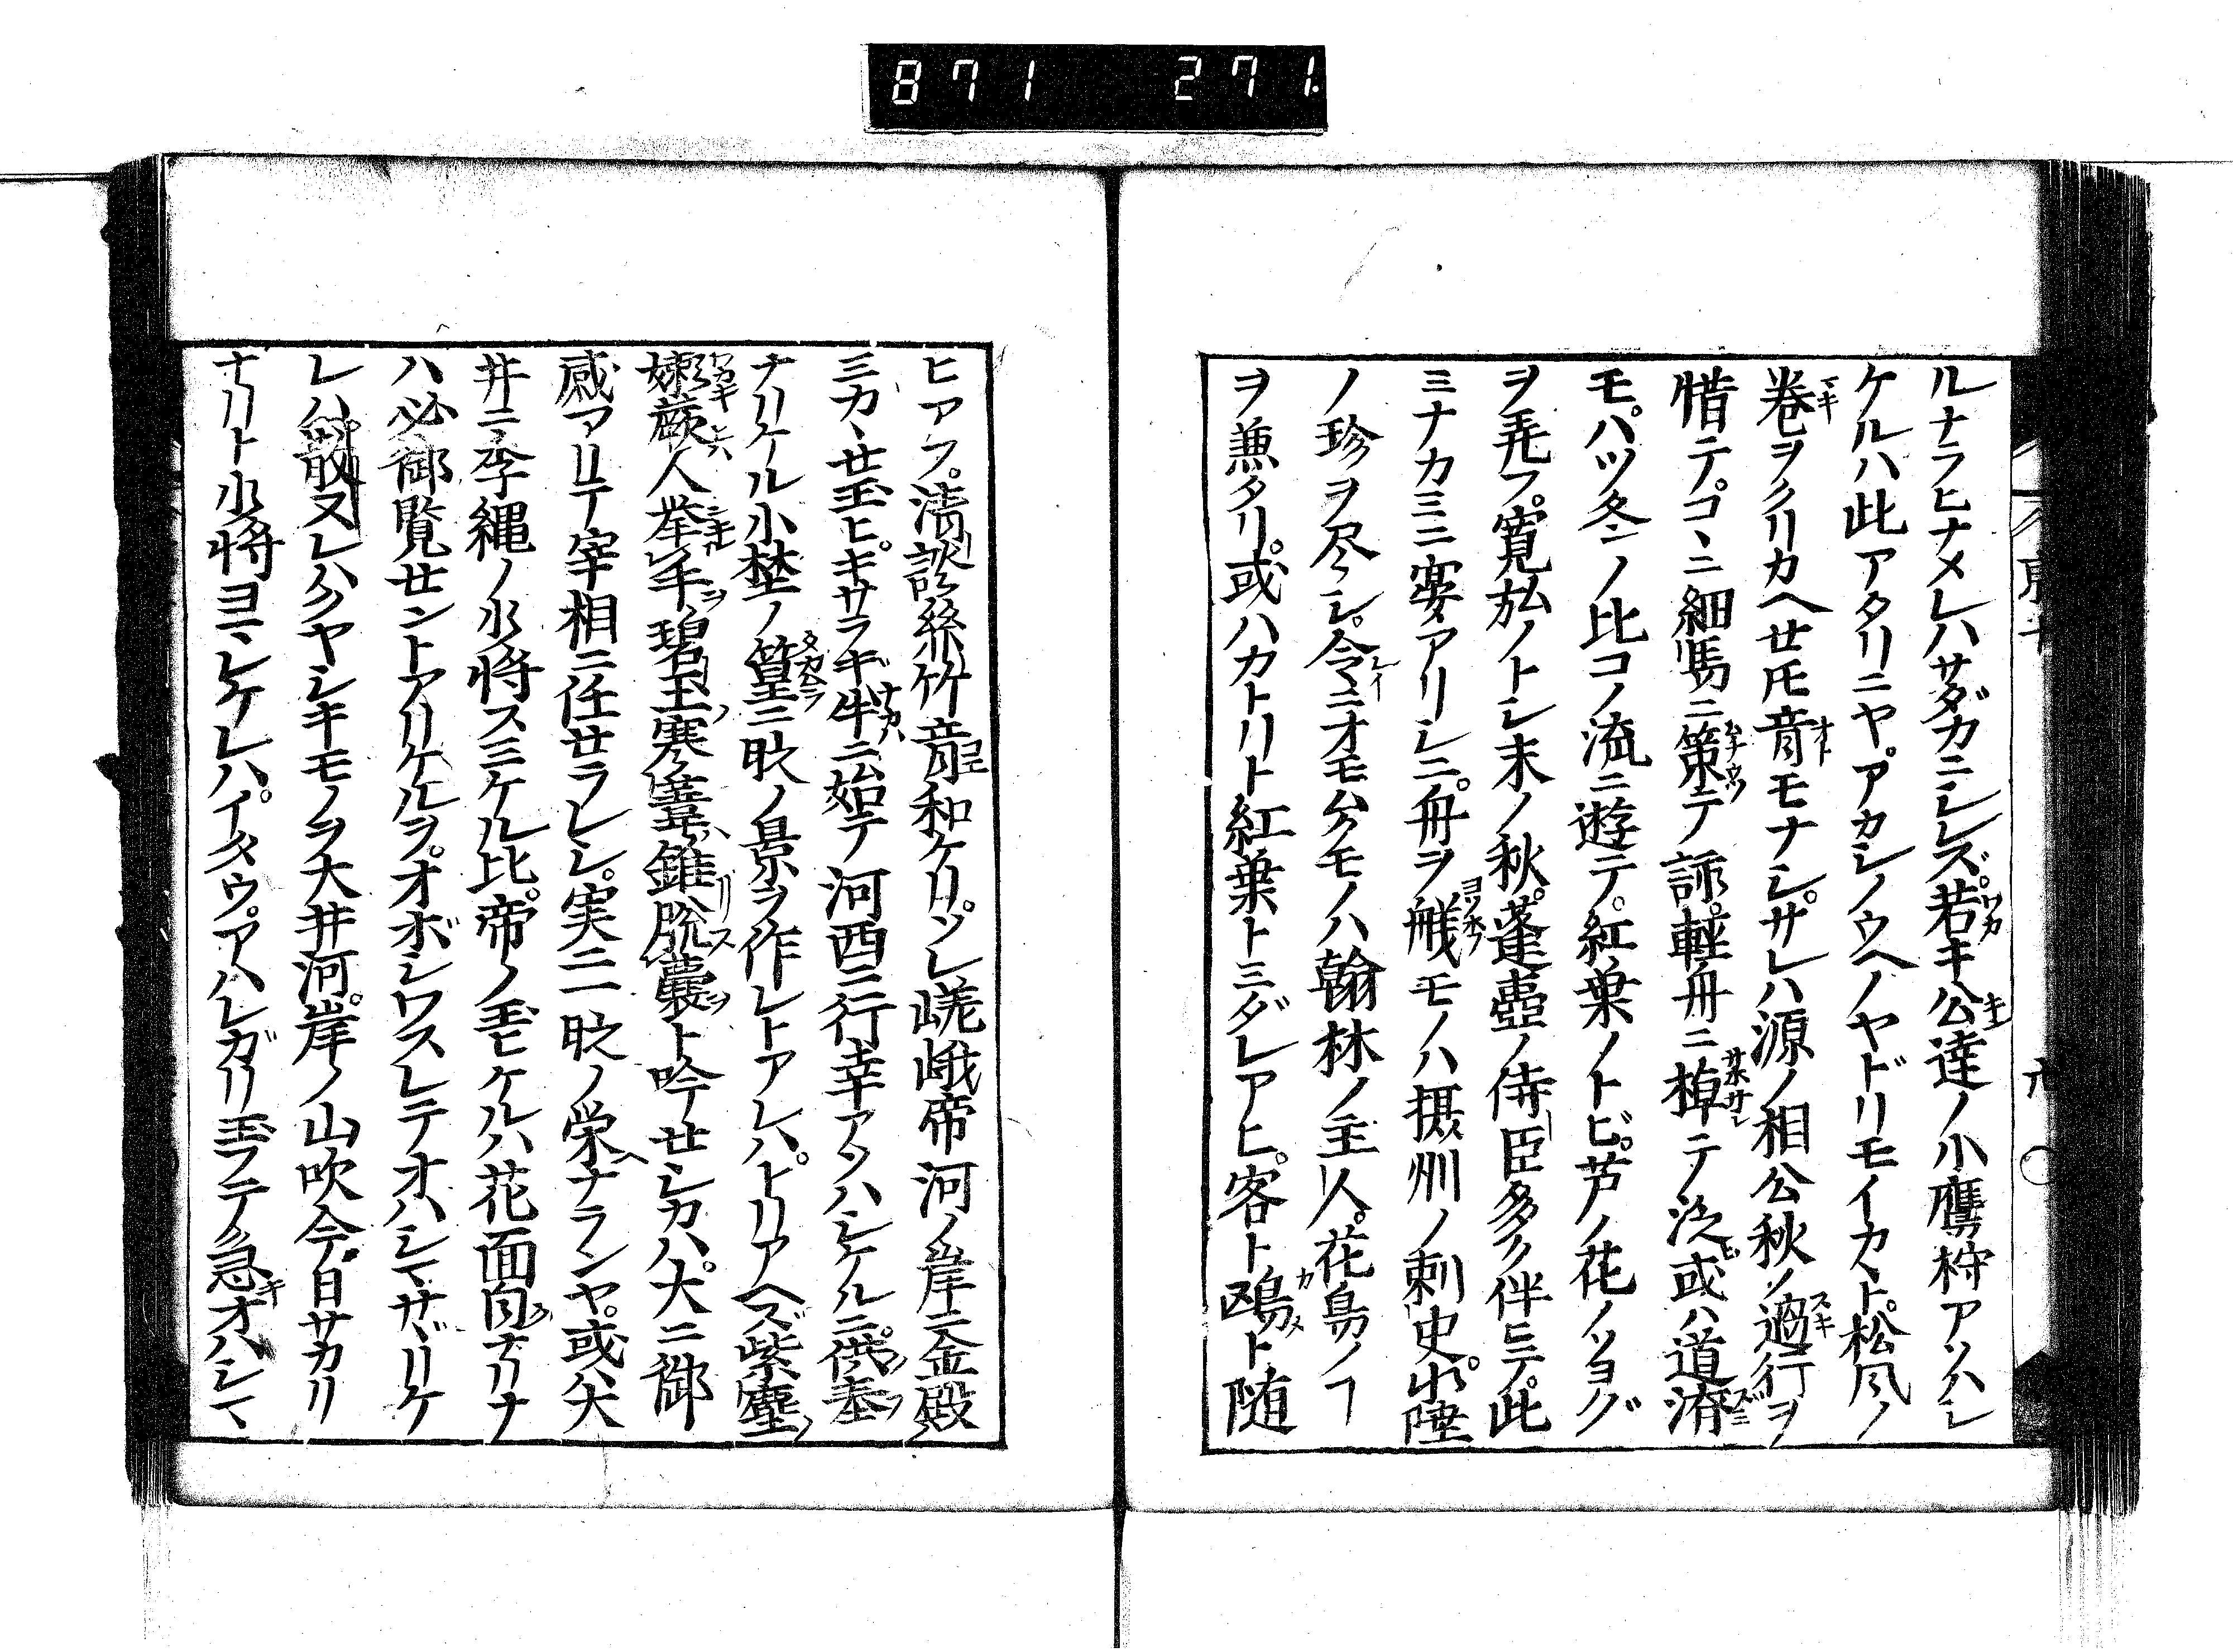 871 271.
ルナラヒナメレハサダカニシレズ。若キ公達ノ小鷹狩アソハシ
ケルハ此アタリニヤ。アカシノウヘノヤドリモイカヽト。松風ノ
巻ヲクリカヘセ𪜈音モナシ。サレハ源ノ相公秋ノ過行ヲ
惜テ。コヽニ細馬ニ策テ詠。軽舟ニ棹テ泛。或ハ道済
モ。ハツ冬ノ比コノ流ニ遊テ。紅葉ノトビ。芦ノ花ノソヨグ
ヲ弄フ。寛弘ノトシ末ノ秋。蓬壺ノ侍臣多ク伴ヒテ。此
ミナカミニ宴アリシニ。舟ヲ艤モノハ摂州ノ刺史。水陸
ノ珍ヲ尽シ。令ニオモムクモノハ翰林ノ主人。花鳥ノヿ
ヲ兼タリ。或ハカトリト紅葉トミダレアヒ。客ト鴎ト随
ヒアフ。清談絲竹音和ケリ。ソレ嵯峨帝河ノ岸ニ金殿
ミカヽセ玉ヒ。キサラギ半ニ始テ河西ニ行幸アソハシケルニ。供奉
ナリケル小埜ノ篁三貶ノ景ヲ作レトアレハ。トリアヘズ紫塵
嫰蕨人挙手碧玉寒蘆錐脱嚢ト吟セシカハ。大ニ御
感アリテ宰相ニ任セラレシ。実ニ一貶ノ栄ナランヤ。或ハ大
井ニ季縄ノ少将スミケル比。帝ノ玉ヒケルハ花面白ナリナ
ハ必御覧セントアリケルヲ。オボシワスレテオハシマサヾリケ
レハ散ヌレハクヤシキモノヲ大井河。岸ノ山吹今日サカリ
ナリト少将ヨマレケレハ。イタウ。アハレガリ玉フテ急オハシマ